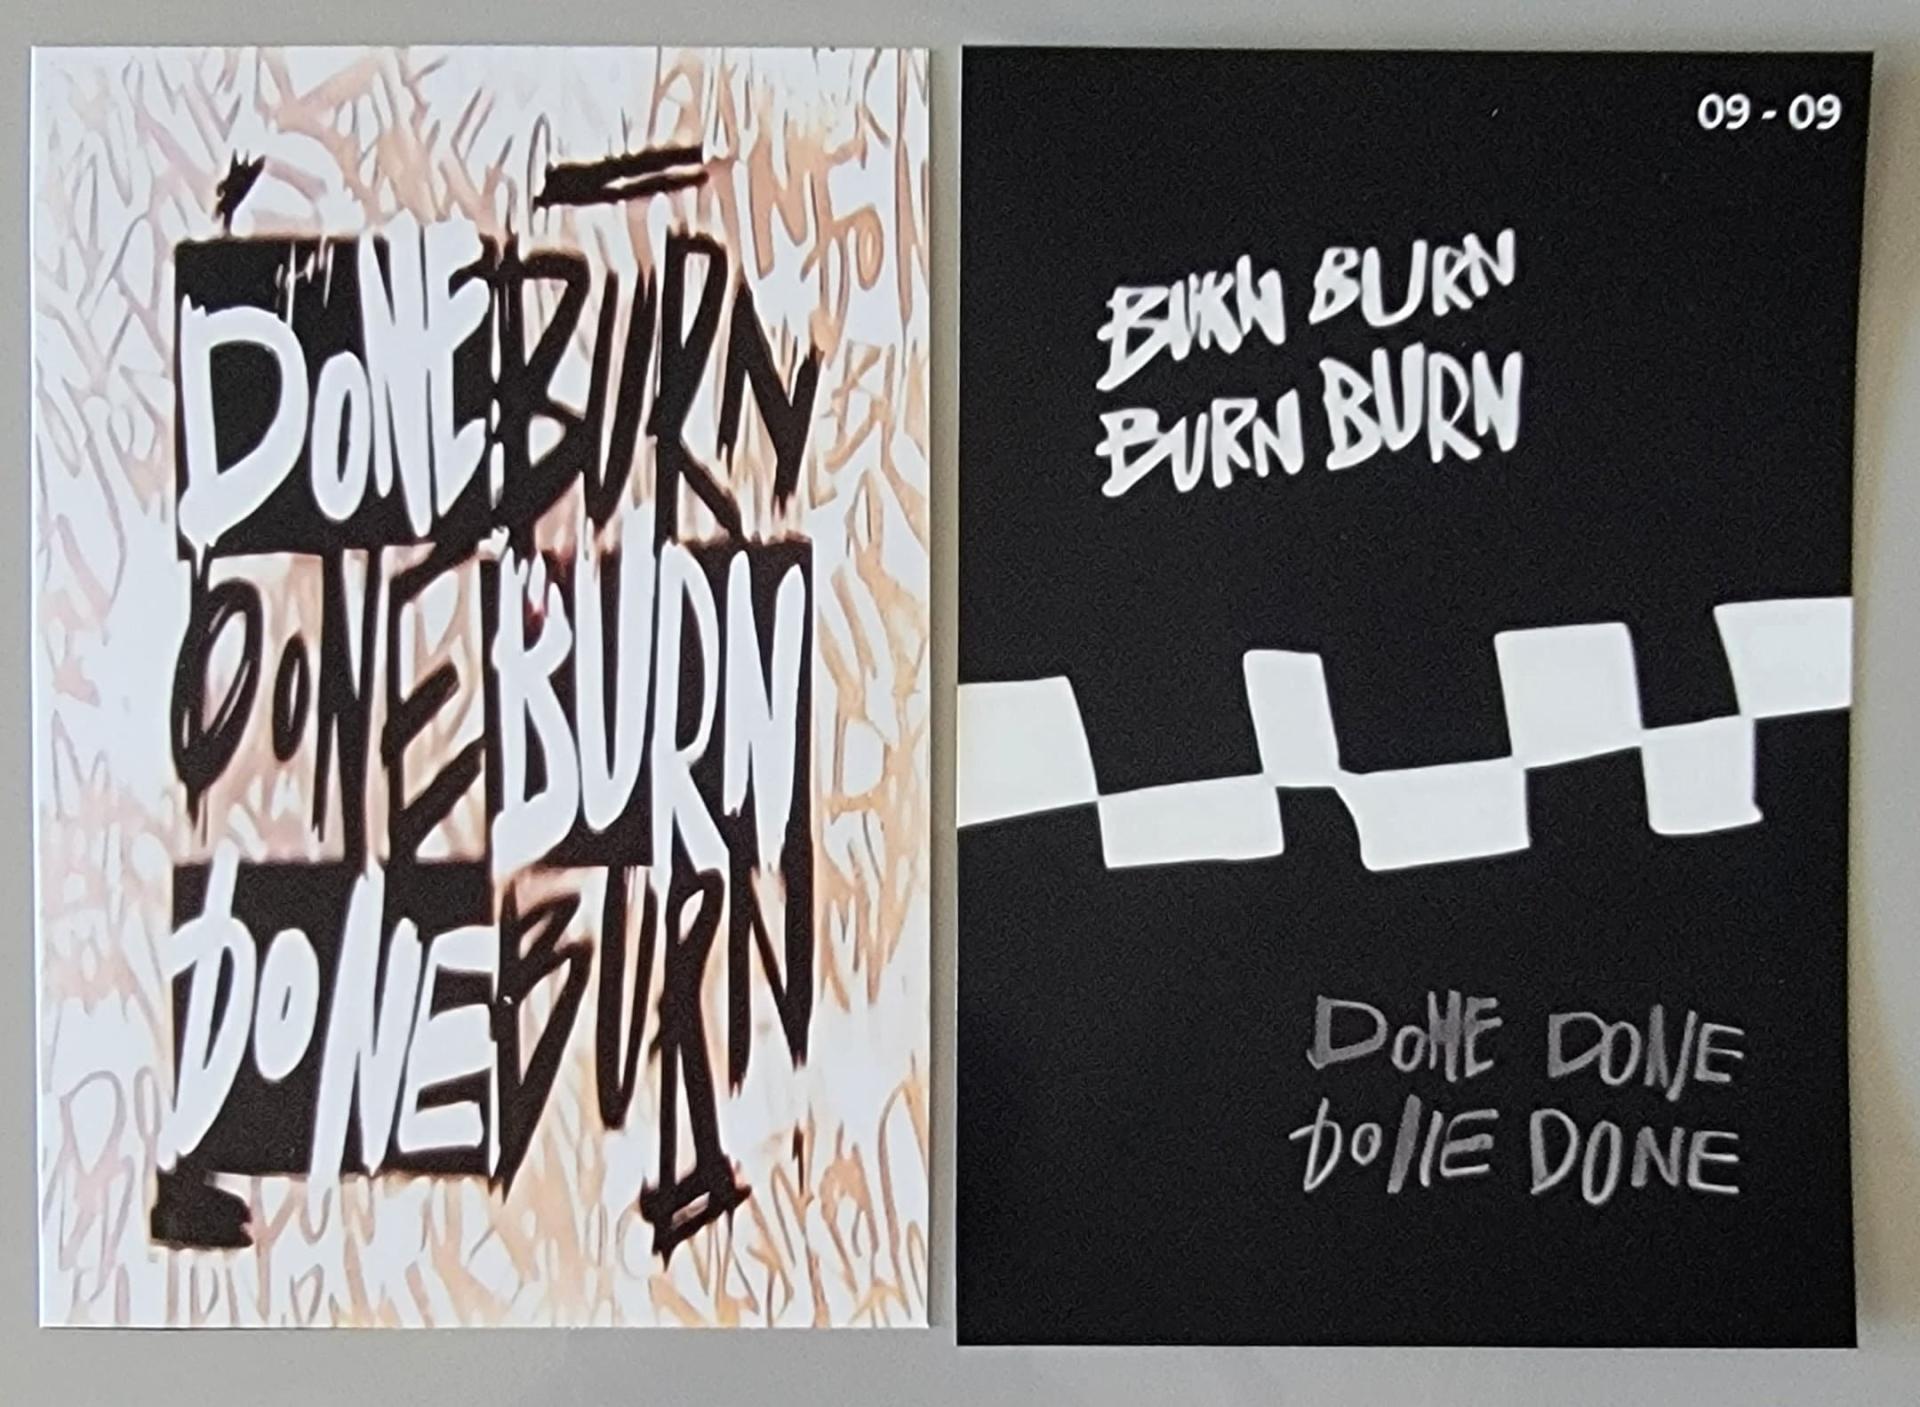 DONE BURN
DONE BURN
DONE BURN
09 - 09
BURN BURN
BURN BURN
DONE DONE
DONE DONE